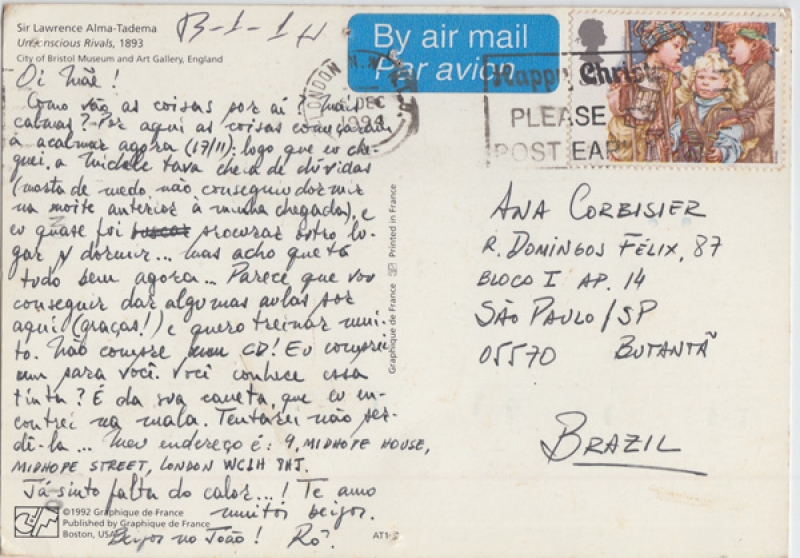 Sir Lawrence Alma-Tadema
Unconscious Rivals, 1893
City of Bristol Museum and Art Gallery, England
B-1-14
By air mail
Par avion
LONDON N.W.
DEC
1994
Happy Christ
PLEASE
POST EARLY
Oi Mãe!
Como vão as coisas por aí? Mais
calmas? Por aqui as coisas começaram
a acalmar agora (17/11): logo que eu che-
guei, a Michele tava cheia de dúvidas
(morta de medo, não conseguiu dormir
na noite anterior à minha chegada), e
eu quase fui buscar procurar outro lu-
gar p/ dormir... mas acho que tá
tudo bem agora... Parece que vou
conseguir dar algumas aulas por
aqui (graças!) e quero treinar mui-
to. Não compre num CD! Eu comprei
um para você. Você conhece essa
tinta? É da sua caneta, que eu en-
contrei na mala. Tentarei não per-
dê-la... Meu endereço é: 9, MIDHOPE HOUSE,
MIDHOPE STREET, LONDON WC1H
Já sinto falta do calor...! Te amo
muitos beijos.
Beijos no João! Rô
©1992 Graphique de France
Published by Graphique de France
Boston, USA
AT1-
Graphique de France Printed in France
ANA CORBISIER
R. DOMINGOS FÉLIX, 87
BLOCO I AP. 14
SÃO PAULO/SP
05570 BUTANTÃ
BRAZIL